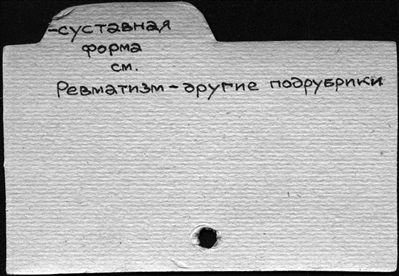 -суставная
форма
см.
Ревматизм - другие подрубрики